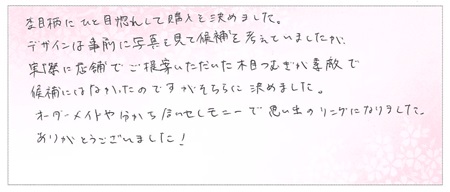 杢目柄にひと目惚れして購入を決めました。
デザインは事前に写真を見て候補を考えていましたが、
実際に店舗でご提案いただいた木目つむぎが素敵で
候補にはなかったのですがそちらに決めました。
オーダーメイドや分かち合いセレモニーで思い出のリングになりました。
ありがとうございました!